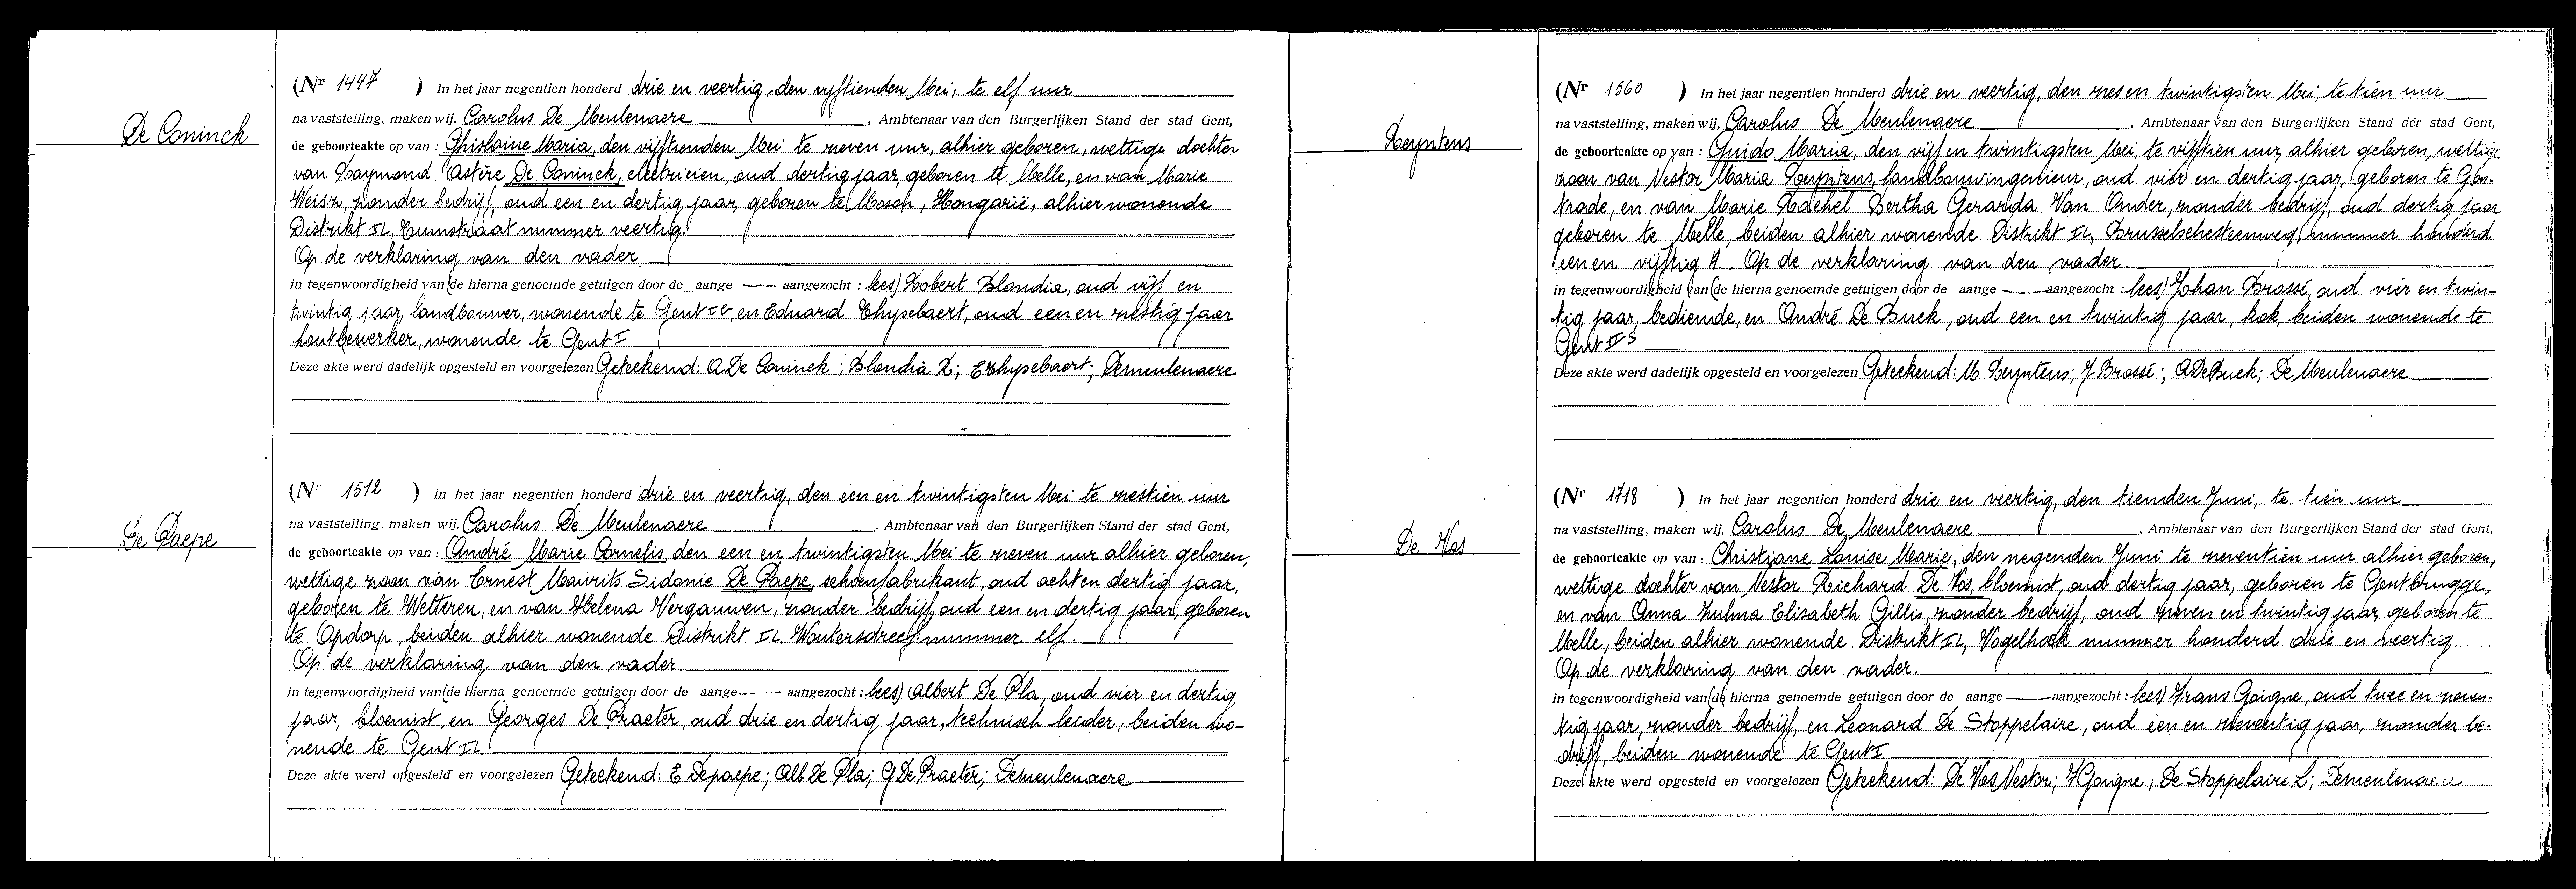 De Coninck
(Nr 1447 ) In het jaar negentien honderd drie en veertig, den vijftienden Mei, te elf uur
na vaststelling, maken wij, Carolus De Meulenaere , Ambtenaar van den Burgerlijken Stand der stad Gent,
de geboorteakte op van : Ghislaine Maria, den vijftienden Mei te zeven uur, alhier geboren, wettige dochter
van Raymond Astère De Coninck, electricien, oud dertig jaar, geboren te Melle, en van Marie
Weisz, zonder bedrijf, oud een en dertig jaar, geboren te Moson, Hongarië, alhier wonende
Distrikt IL, nummer veertig.
Op de verklaring van den vader.
in tegenwoordigheid van (de hierna genoemde getuigen door de aange — aangezocht : lees) Robert Blondia, oud vijf en
twintig jaar, landbouwer, wonende te Gent en Eduard Thysebaert, oud een en zestig jaar
houtbewerker, wonende te Gent I
Deze akte werd dadelijk opgesteld en voorgelezen Geteekend: A De Coninck ; Blondia R; E Thysebaert; Demeulenaere
De Paepe
(Nr 1512 ) In het jaar negentien honderd drie en veertig, den een en twintigsten Mei te zestien uur
na vaststelling, maken wij, Carolus De Meulenaere , Ambtenaar van den Burgerlijken Stand der stad Gent,
de geboorteakte op van : André Marie Cornelis, den een en twintigsten Mei te zeven uur alhier geboren,
wettige zoon van Ernest Maurits Sidonie De Paepe, schoenfabrikant, oud acht en dertig jaar,
geboren te Wetteren, en van Helena Vergauwen, zonder bedrijf, oud een en dertig jaar, geboren
te Opdorp, beiden alhier wonende Distrikt IL Woutersdreef nummer elf.
Op de verklaring van den vader
in tegenwoordigheid van (de hierna genoemde getuigen door de aange — aangezocht : lees) Albert De Pla, oud vier en dertig
jaar, bloemist, en Georges De Praeter, oud drie en dertig jaar, technisch leider, beiden wo-
nende te Gent IL
Deze akte werd opgesteld en voorgelezen Geteekend: E Depaepe; Alb De Pla; G De Praeter; Demeulenaere
Reyntens
(Nr 1560 ) In het jaar negentien honderd drie en veertig, den zes en twintigsten Mei, te tien uur
na vaststelling, maken wij, Carolus De Meulenaere , Ambtenaar van den Burgerlijken Stand der stad Gent,
de geboorteakte op van : Guido Maria, den vijf en twintigsten Mei, te vijftien uur, alhier geboren, wettige
zoon van Nestor Maria Reyntens, landbouwingenieur, oud vier en dertig jaar, geboren te Gon-
trode, en van Marie Rachel Bertha Gerarda Van Onder, zonder bedrijf, oud dertig jaar
geboren te Melle, beiden alhier wonende Distrikt IL, Brusselschesteenweg, nummer honderd
een en vijftig A. Op de verklaring van den vader.
in tegenwoordigheid van (de hierna genoemde getuigen door de aange — aangezocht : lees) Johan Brossé, oud vier en twin-
tig jaar, bediende, en André De Buck, oud een en twintig jaar, kok, beiden wonende te
Gent
Deze akte werd dadelijk opgesteld en voorgelezen Geteekend: M Reyntens; J Brossé ; A De Buck; De Meulenaere
De Vos
(Nr 1718 ) In het jaar negentien honderd drie en veertig, den tienden Juni, te tien uur
na vaststelling, maken wij, Carolus De Meulenaere , Ambtenaar van den Burgerlijken Stand der stad Gent,
de geboorteakte op van : Christiane Louise Marie, den negenden Juni te zeventien uur alhier geboren,
wettige dochter van Nestor Richard De Vos, bloemist, oud dertig jaar, geboren te Gentbrugge,
en van Anna Zulma Elisabeth Gillis, zonder bedrijf, oud zeven en twintig jaar, geboren te
Melle, beiden alhier wonende Distrikt IL, Vogelhoek nummer honderd drie en veertig
Op de verklaring van den vader.
in tegenwoordigheid van (de hierna genoemde getuigen door de aange — aangezocht : lees) Frans Goigne, oud twee en zeven-
tig jaar, zonder bedrijf, en Leonard De Stoppelaire, oud een en zeventig jaar, zonder be-
drijf, beiden wonende te Gent I.
Deze akte werd opgesteld en voorgelezen Geteekend: De Vos Nestor; F Goigne ; De Stoppelaire L; Demeulenaere